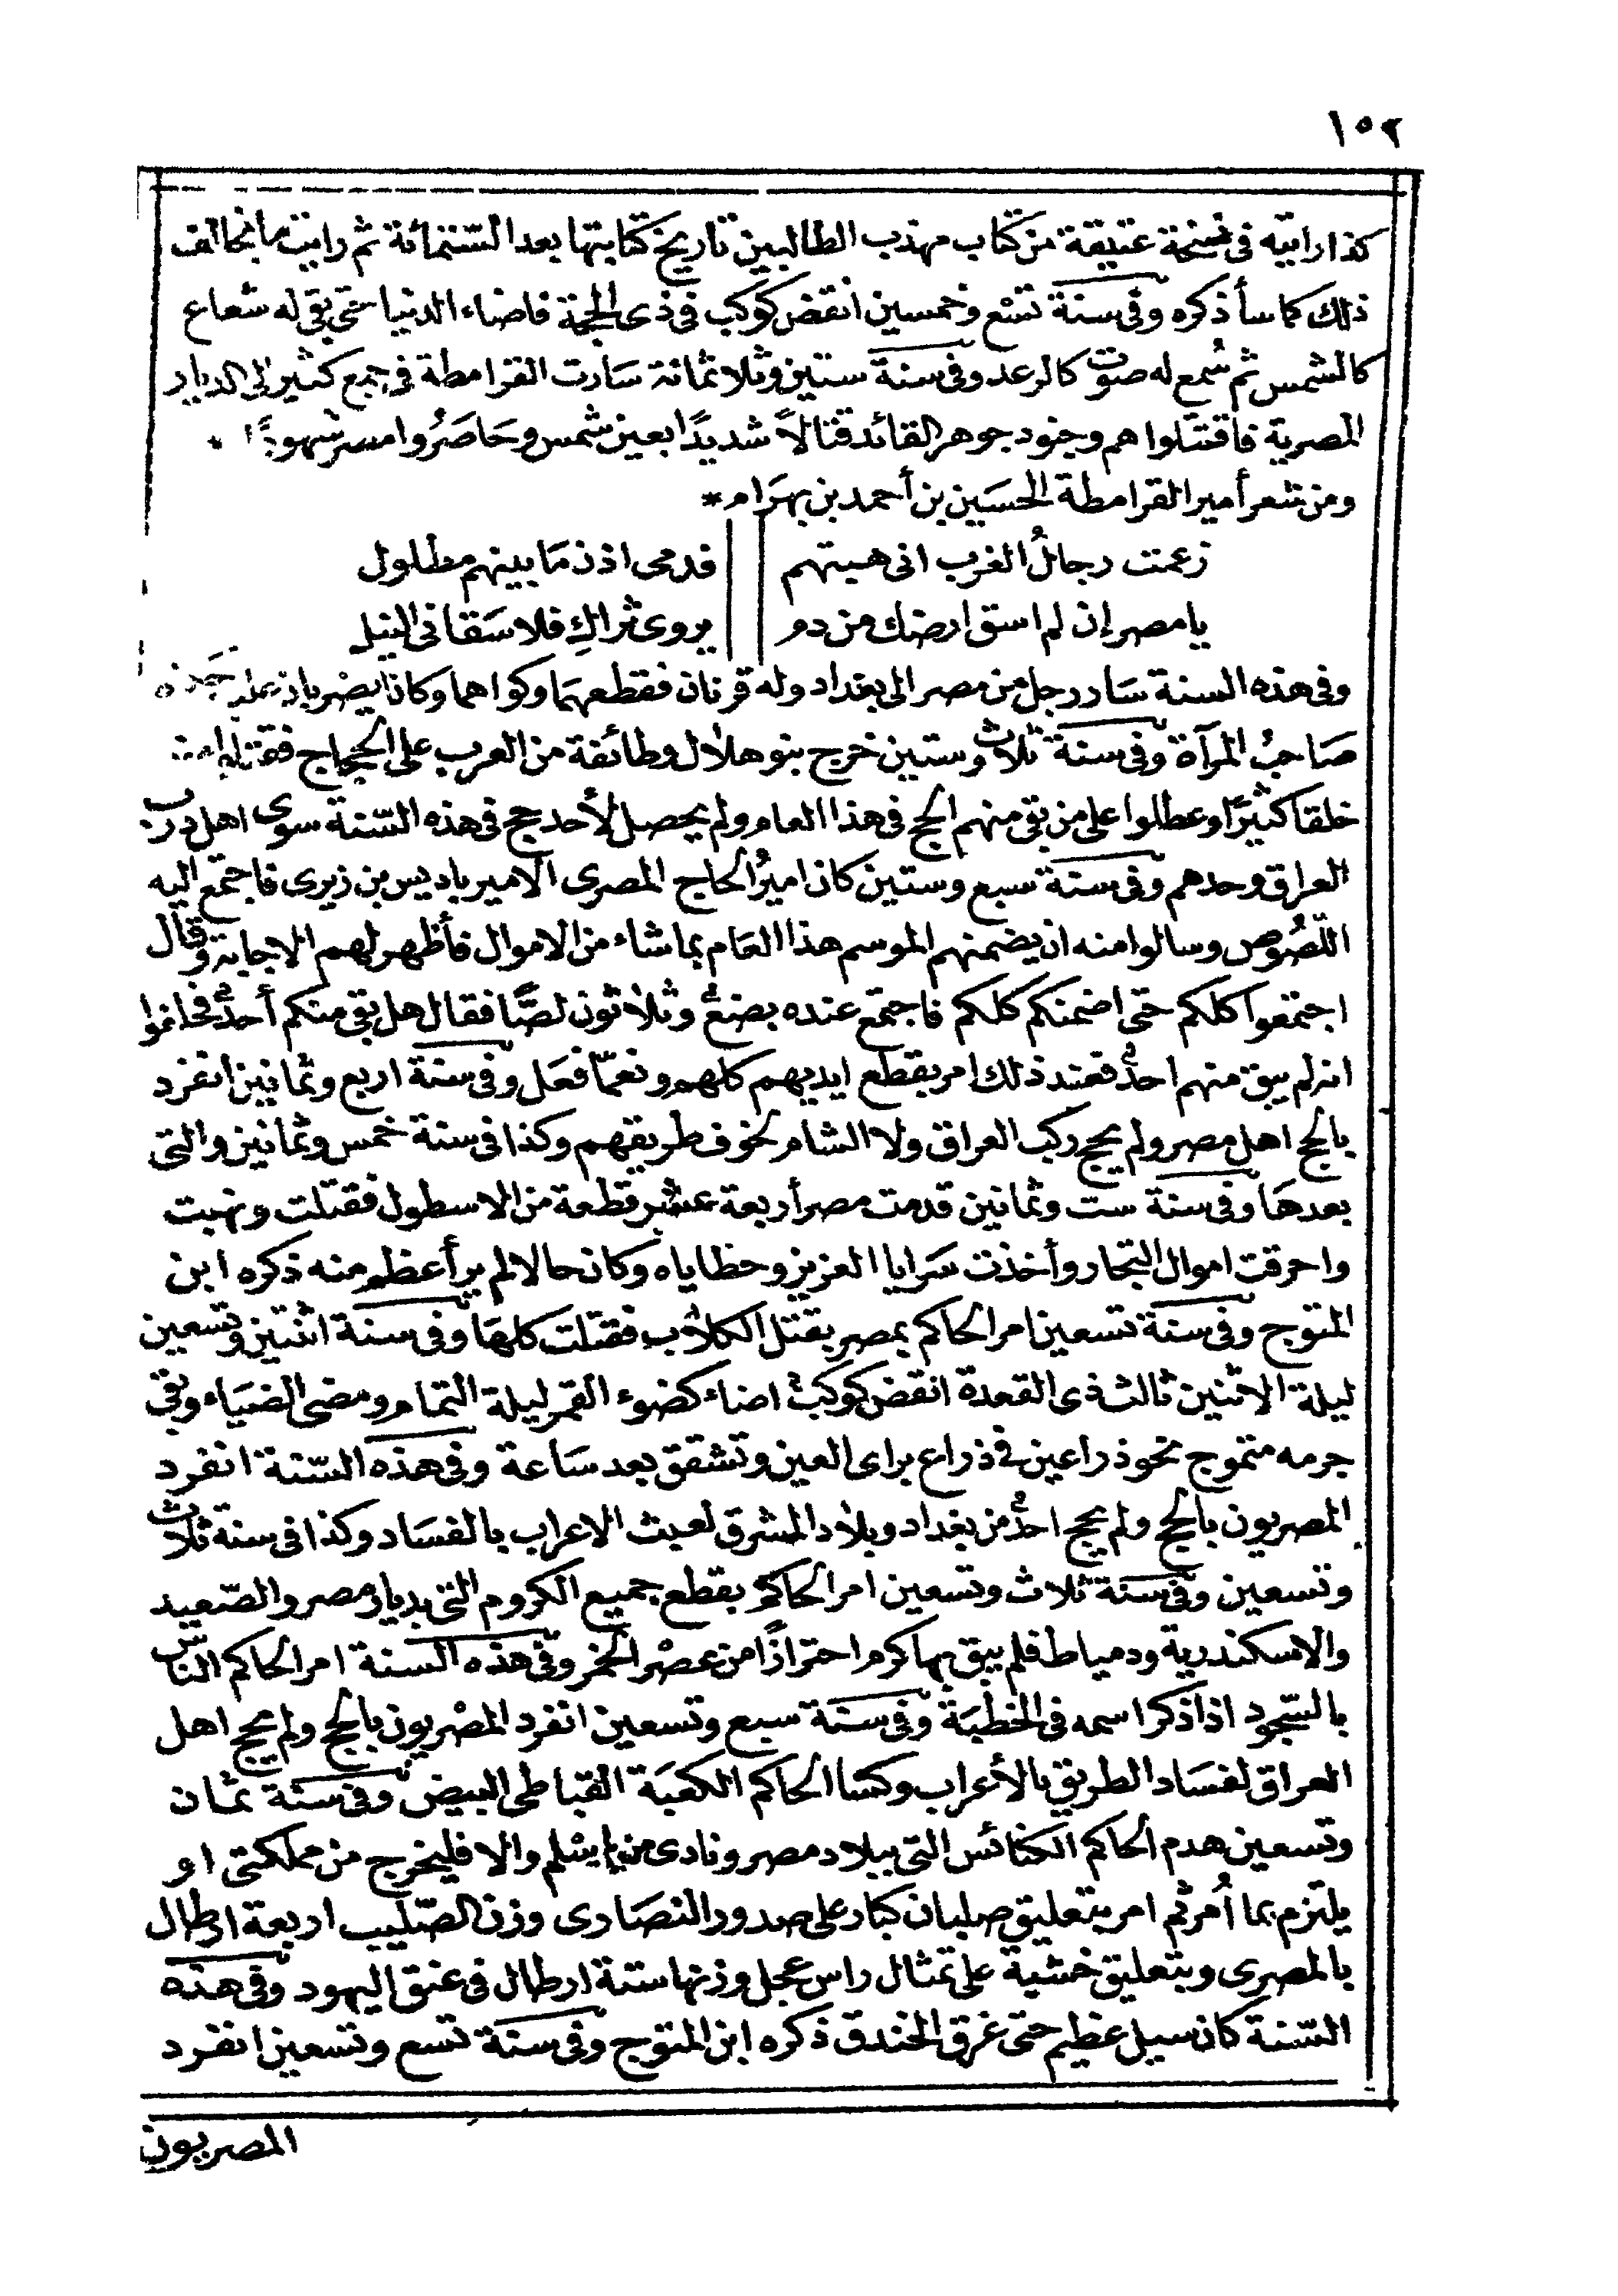 ١٥٢
كذا رايته فى نسخة عتيقة من كتاب مهذب الطالبين تاريخ كتابتها بعد الستمائة ثم رايت ما يخالف
ذلك كما سأذكره وفى سنة تسع وخمسين انقض كوكب فى ذى الحجة فاضاء الدنيا حتى بقى له شعاع
كالشمس ثم سُمع له صوت كالرعد وفى سنة ستين وثلاثمائة سَارت القرامطة فى جمع كثير الى الديار
المصرية فاقتتلوا هم وجنود جوهر القائد قتالاً شديدًا بعين شمس وحَاصَرُوا مسر شهودًا *
ومن شعر أمير القرامطة الحسَين بن أحمد بن بهرَام *
زعمت رجالُ الغرب انى هبتهم || فدمى اذن مَا بينهم مطلول
يا مصر إن لم اسق ارضك من دم || يروى ثراكِ فلا سَقانى النيل
وفى هذه السنة سَار رجل من مصر الى بغداد وله قرنان فقطعهمَا وكواهما وكانا يضربان عليه
صَاحبُ المرآة وفى سنة ثلاث وستين خرج بنو هلال وطائفة من العرب على الحجاج فقتلوا
خلقا كثيرًا وعطلوا على من بقى منهم الحج فى هذا العام ولم يحصل لأحد حج فى هذه السّنة سوى اهل درب
العراق وحدهم وفى سنة سبع وستين كان اميرُ الحاج المصرى الامير باديس بن زيرى فاجتمع اليه
اللّصُوص وسالوا منه ان يضمنهم الموسم هذا العَام بما شاء من الاموال فأظهر لهم الاجابة وقال
اجتمعوا كلكم حتى اضمنكم كلكم فاجتمع عنده بضعٌ وثلاثون لصًّا فقال هل بقى منكم أحدٌ فحلفوا
انه لم يبق منهم احدٌ فعند ذلك امر بقطع ايديهم كلهم ونعمّا فعَل وفى سنة اربع وثمانين انفرد
بالحج اهل مصر ولم يحج ركب العراق ولا الشام لخوف طريقهم وكذا فى سنة خمس وثمانين والتى
بعدهَا وفى سنة ست وثمانين قدمت مصر أربعة عشر قطعة من الاسطول فقتلت ونهبت
واحرقت اموال التجار وأخذت سَرايا العزيز وحظاياه وكان حالا لم ير أعظم منه ذكره ابن
المتوج وفى سنة تسعين امر الحاكم بمصر بقتل الكلاب فقتلت كلهَا وفى سنة اثنتين وتسعين
ليلة الاثنين ثالث ذى القعدة انقض كوكبٌ اضاء كضوء القمر ليلة التمام ومضى الضيَاء وبقى
جرمه متموج نحو ذراعين فى ذراع براى العين وتشقق بعد سَاعة وفى هذه السّنة انفرد
المصريون بالحج ولم يحج احدٌ من بغداد وبلاد المشرق لعبث الاعراب بالفسَاد وكذا فى سنة ثلاث
وتسعين وفى سنة ثلاث وتسعين امر الحاكم بقطع جميع الكروم التى بديار مصر والصّعيد
والاسكندرية ودمياط فلم يبق بها كرم احترازًا من عصْر الخمر وفى هذه السنة امر الحاكم النّاس
بالسّجود اذا ذكر اسمه فى الخطبَة وفى سنة سبع وتسعين انفرد المصْريون بالحج ولم يحج اهل
العراق لفسَاد الطريق بالأعراب وكسَا الحاكم الكعبَة القباطى البيض وفى سنة ثمان
وتسعين هدم الحاكم الكنائس التى ببلاد مصر ونادى من لم يسْلم والا فليخرج من مملكتى او
يلتزم بما اُمر ثم امر بتعليق صلبان كبار على صدور النصَارى وزن الصّليب اربعة ارطال
بالمصرى وبتعليق خشبة على تمثال راس عجل وزنها ستة ارطال فى عنق اليهود وفى هذه
السّنة كان سيل عظيم حتى غرق الخندق ذكره ابن المتوج وفى سنة تسع وتسعين انفرد
المصريون